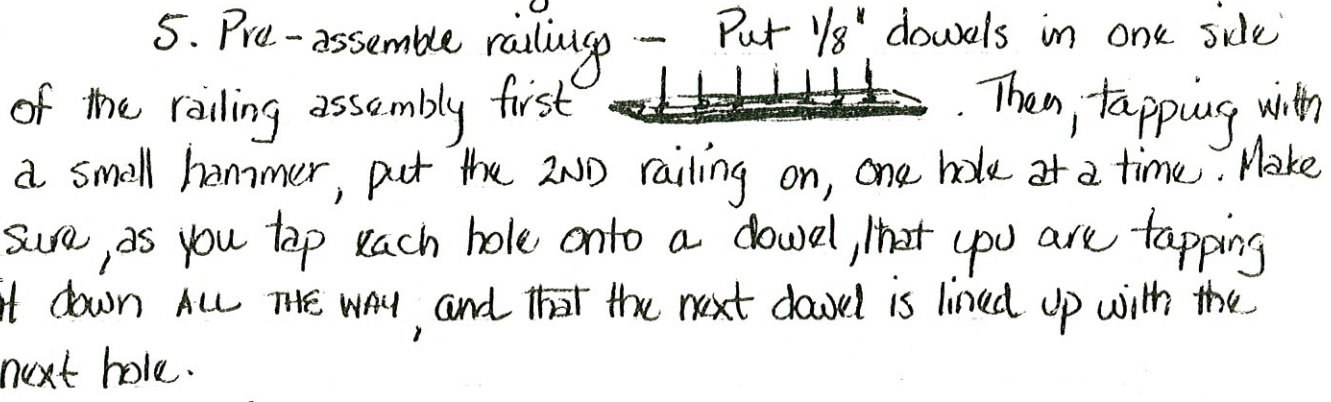 5. Pre-assemble railings - Put 1/8" dowels in one side
of the railing assembly first . Then, tapping with
a small hammer, put the 2ND railing on, one hole at a time. Make
sure, as you tap each hole onto a dowel, that you are tapping
it down ALL THE WAY, and that the next dowel is lined up with the
next hole.